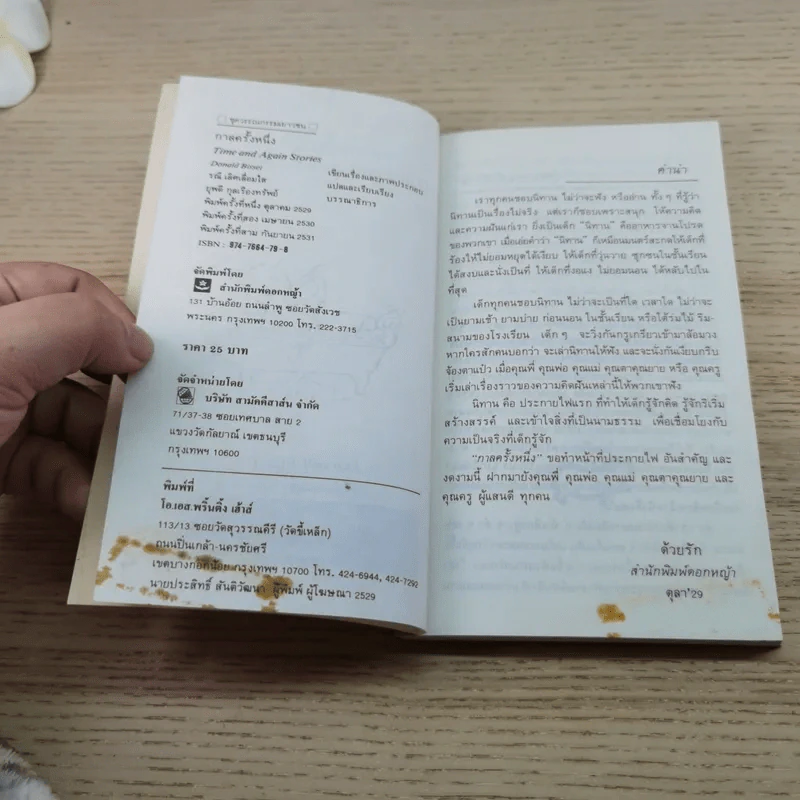 ชุดวรรณกรรมเยาวชน
กาลครั้งหนึ่ง
Time and Again Stories
Donald Bisset เขียนเรื่องและภาพประกอบ
รณี เลิศเลื่อมใส แปลและเรียบเรียง
ยุพดี กุลเรืองทรัพย์ บรรณาธิการ
พิมพ์ครั้งที่หนึ่ง ตุลาคม 2529
พิมพ์ครั้งที่สอง เมษายน 2530
พิมพ์ครั้งที่สาม กันยายน 2531
ISBN : 974-7664-79-8
จัดพิมพ์โดย
สำนักพิมพ์ดอกหญ้า
131 บ้านอ้อย ถนนลำพู ซอยวัดสังเวช
พระนคร กรุงเทพฯ 10200 โทร. 222-3715
ราคา 25 บาท
จัดจำหน่ายโดย
บริษัท สามัคคีสาส์น จำกัด
71/37-38 ซอยเทศบาล สาย 2
แขวงวัดกัลยาณ์ เขตธนบุรี
กรุงเทพฯ 10600
พิมพ์ที่
โอ.เอส.พริ้นติ้ง เฮ้าส์
113/13 ซอยวัดสุวรรณคีรี (วัดขี้เหล็ก)
ถนนปิ่นเกล้า-นครชัยศรี
เขตบางกอกน้อย กรุงเทพฯ 10700 โทร. 424-6944, 424-7292
นายประสิทธิ์ สันติวัฒนา ผู้พิมพ์ ผู้โฆษณา 2529
คำนำ
เราทุกคนชอบนิทาน ไม่ว่าจะฟัง หรืออ่าน ทั้ง ๆ ที่รู้ว่า
นิทานเป็นเรื่องไม่จริง แต่เราก็ชอบเพราะสนุก ให้ความคิด
และความฝันแก่เรา ยิ่งเป็นเด็ก "นิทาน" คืออาหารจานโปรด
ของพวกเขา เมื่อเอ่ยคำว่า "นิทาน" ก็เหมือนมนตร์สะกดให้เด็กที่
ร้องไห้ไม่ยอมหยุดได้เงียบ ให้เด็กที่วุ่นวาย ซุกซนในชั้นเรียน
ได้สงบและนั่งเป็นที่ ให้เด็กที่งอแง ไม่ยอมนอน ได้หลับไปใน
ที่สุด
เด็กทุกคนชอบนิทาน ไม่ว่าจะเป็นที่ใด เวลาใด ไม่ว่าจะ
เป็นยามเช้า ยามบ่าย ก่อนนอน ในชั้นเรียน หรือใต้ร่มไม้ ริม
สนามของโรงเรียน เด็ก ๆ จะวิ่งกันกรูเกรียวเข้ามาล้อมวง
หากใครสักคนบอกว่า จะเล่านิทานให้ฟัง และจะนั่งกันเงียบกริบ
จ้องตาแป๋ว เมื่อคุณพี่ คุณพ่อ คุณแม่ คุณตาคุณยาย หรือ คุณครู
เริ่มเล่าเรื่องราวของความคิดฝันเหล่านี้ให้พวกเขาฟัง
นิทาน คือ ประกายไฟแรก ที่ทำให้เด็กรู้จักคิด รู้จักริเริ่ม
สร้างสรรค์ และเข้าใจสิ่งที่เป็นนามธรรม เพื่อเชื่อมโยงกับ
ความเป็นจริงที่เด็กรู้จัก
"กาลครั้งหนึ่ง" ขอทำหน้าที่ประกายไฟ อันสำคัญ และ
งดงามนี้ ฝากมายังคุณพี่ คุณพ่อ คุณแม่ คุณตาคุณยาย และ
คุณครู ผู้แสนดี ทุกคน
ด้วยรัก
สำนักพิมพ์ดอกหญ้า
ตุลา'29